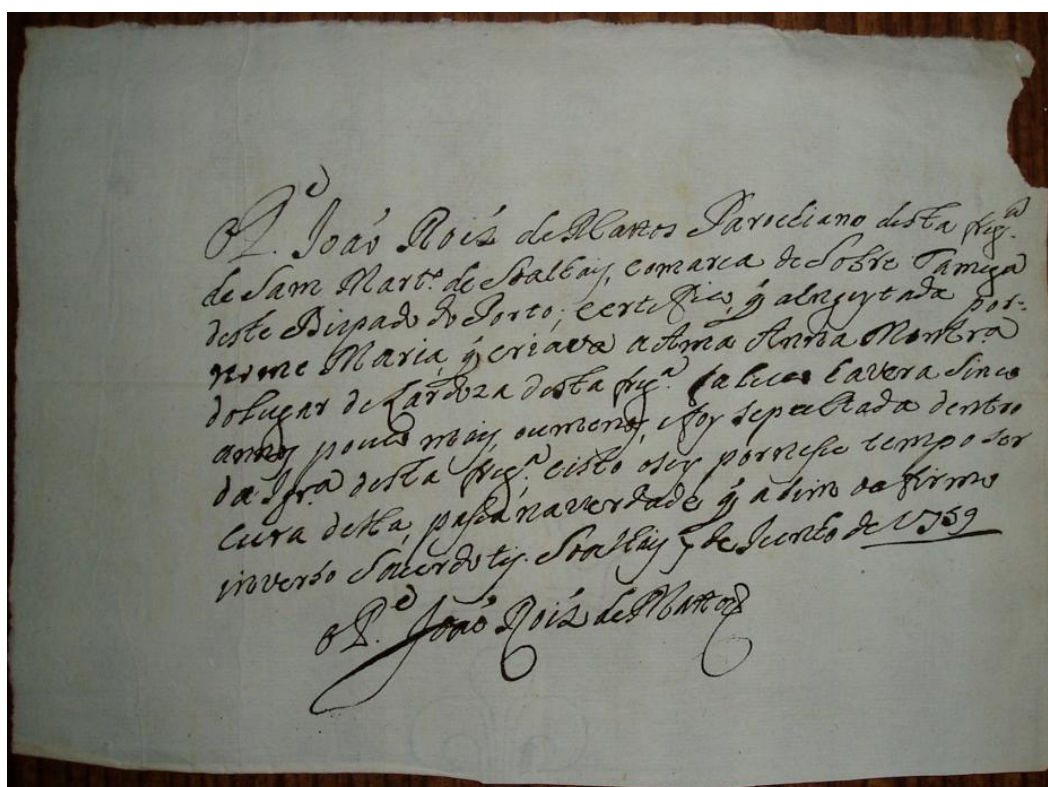 O P.e João Roiz de Mattos Parochiano desta freg.a
de Sam Mart.o de Soalhaiz, comarca de Sobre Tamega
deste Bispado do Porto, certifico, q a
nome Maria, q criava a Ama Anna Montr.a por-
do lugar de desta freg.a faleceo havera sinco
annos pouco mais ou menos, e foy sepultada dentro
da Igr.a desta freg.a, e isto o sey por nesse tempo ser
cura desta, passa na verdade q asim o afirmo
in verbo Sacerdotis. Soalhais 7 de Junho de 1759
O P.e João Roiz de Mattos